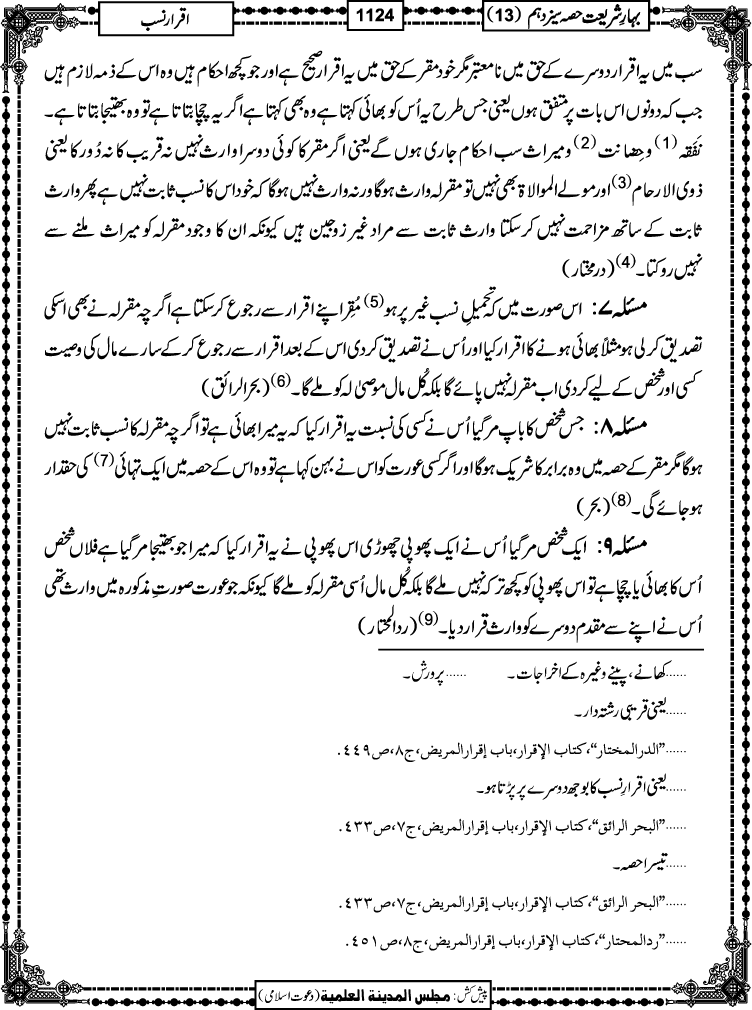 بہارِشریعت حصہ سیزدہم (13)
1124
اقرار نسب
سب میں یہ اقرار دوسرے کے حق میں نامعتبر مگر خود مقر کے حق میں یہ اقرار صحیح ہے اور جو کچھ احکام ہیں وہ اس کے ذمہ لازم ہیں
جب کہ دونوں اس بات پر متفق ہوں یعنی جس طرح یہ اُس کو بھائی کہتا ہے وہ بھی کہتا ہے اگر یہ چچا بتاتا ہے تو وہ بھتیجا بتاتا ہے۔
نَفَقہ (1) و حِضانت (2) و میراث سب احکام جاری ہوں گے یعنی اگر مقر کا کوئی دوسرا وارث نہیں نہ قریب کا نہ دُور کا یعنی
ذوی الارحام (3) اور مولے الموالاۃ بھی نہیں تو مقرلہ وارث ہوگا ورنہ وارث نہیں ہوگا کہ خود اس کا نسب ثابت نہیں ہے پھر وارث
ثابت کے ساتھ مزاحمت نہیں کرسکتا وارث ثابت سے مراد غیر زوجین ہیں کیونکہ ان کا وجود مقرلہ کو میراث ملنے سے
نہیں روکتا۔ (4) (درمختار)
مسئلہ ۷: اس صورت میں کہ تحمیلِ نسب غیر پر ہو (5) مُقِر اپنے اقرار سے رجوع کرسکتا ہے اگرچہ مقرلہ نے بھی اسکی
تصدیق کرلی ہو مثلاً بھائی ہونے کا اقرار کیا اور اُس نے تصدیق کردی اس کے بعد اقرار سے رجوع کرکے سارے مال کی وصیت
کسی اور شخص کے لیے کردی اب مقرلہ نہیں پائے گا بلکہ کُل مال موصیٰ لہ کو ملے گا۔ (6) (بحرالرائق)
مسئلہ ۸: جس شخص کا باپ مرگیا اُس نے کسی کی نسبت یہ اقرار کیا کہ یہ میرا بھائی ہے تو اگرچہ مقرلہ کا نسب ثابت نہیں
ہوگا مگر مقر کے حصہ میں وہ برابر کا شریک ہوگا اور اگر کسی عورت کو اس نے بہن کہا ہے تو وہ اس کے حصہ میں ایک تہائی (7) کی حقدار
ہوجائے گی۔ (8) (بحر)
مسئلہ ۹: ایک شخص مرگیا اُس نے ایک پھوپی چھوڑی اس پھوپی نے یہ اقرار کیا کہ میرا جو بھتیجا مرگیا ہے فلاں شخص
اُس کا بھائی یا چچا ہے تو اس پھوپی کو کچھ ترکہ نہیں ملے گا بلکہ کُل مال اُسی مقرلہ کو ملے گا کیونکہ جو عورت صورتِ مذکورہ میں وارث تھی
اُس نے اپنے سے مقدم دوسرے کو وارث قرار دیا۔ (9) (ردالمحتار)
......کھانے، پینے وغیرہ کے اخراجات۔ ......پرورش۔
......یعنی قریبی رشتہ دار۔
......”الدرالمختار“، كتاب الإقرار، باب إقرارالمريض، ج٨، ص٤٤٩.
......یعنی اقرارِ نسب کا بوجھ دوسرے پر پڑتا ہو۔
......”البحر الرائق“، كتاب الإقرار، باب إقرارالمريض، ج٧، ص٤٣٣.
......تیسرا حصہ۔
......”البحر الرائق“، كتاب الإقرار، باب إقرارالمريض، ج٧، ص٤٣٣.
......”ردالمحتار“، كتاب الإقرار، باب إقرارالمريض، ج٨، ص٤٥١.
پیش کش: مجلس المدينة العلمية (دعوت اسلامی)